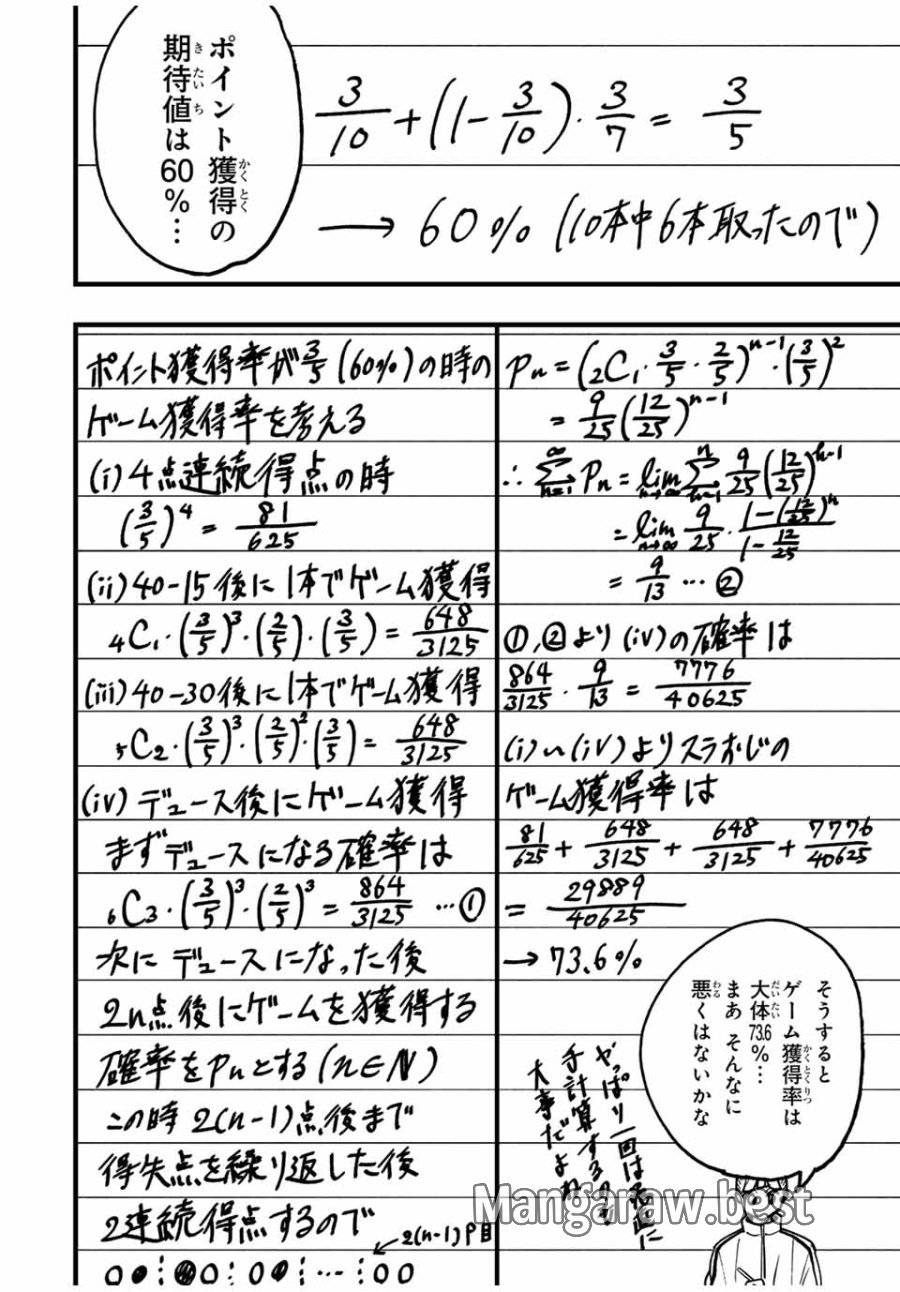 ポイント獲得の
期待値は
60%…
3/10 + (1 - 3/10)・3/7 = 3/5
→ 60% (10本中6本取ったので)
ポイント獲得率が3/5(60%)の時の
ゲーム獲得率を考える
(i) 4点連続得点の時
(3/5)^4 = 81/625
(ii) 40-15後に1本でゲーム獲得
₄C₁・(3/5)^3・(2/5)・(3/5) = 648/3125
(iii) 40-30後に1本でゲーム獲得
₅C₂・(3/5)^3・(2/5)^2・(3/5) = 648/3125
(iv) デュース後にゲーム獲得
まずデュースになる確率は
₆C₃・(3/5)^3・(2/5)^3 = 864/3125 …①
次にデュースになった後
2n点後にゲームを獲得する
確率をPnとする(n∈N)
この時2(n-1)点後まで
得失点を繰り返した後
2連続得点するので
2(n-1)P目
○●⋮●○⋮○●⋮…⋮○○
Pn = (₂C₁・3/5・2/5)^(n-1)・(3/5)^2
= 9/25 (12/25)^(n-1)
∴ ∑[n=1→∞] Pn = lim[n→∞] ∑[n=1→n] 9/25 (12/25)^(n-1)
= lim[n→∞] 9/25・(1-(12/25)^n)/(1-12/25)
= 9/13 …②
①,②より(iv)の確率は
864/3125・9/13 = 7776/40625
(i)~(iV)よりスラおじの
ゲーム獲得率は
81/625 + 648/3125 + 648/3125 + 7776/40625
= 29889/40625
→ 73.6%
そうすると
ゲーム獲得率は
大体73.6%…
まあ そんなに
悪くはないかな
やっぱり一回は
手計算するのも
大事だよね
Mangaraw.best